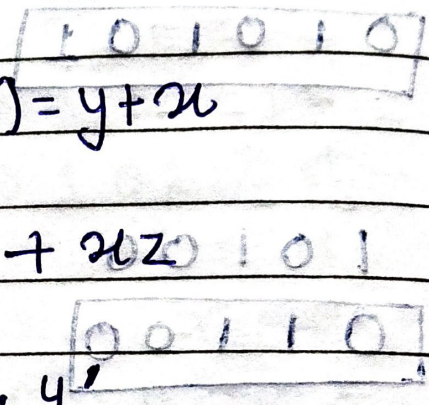 1 0 1 0 1 0
) = y + x
+ xz
0 0 1 0 1
0 0 1 1 0
y'